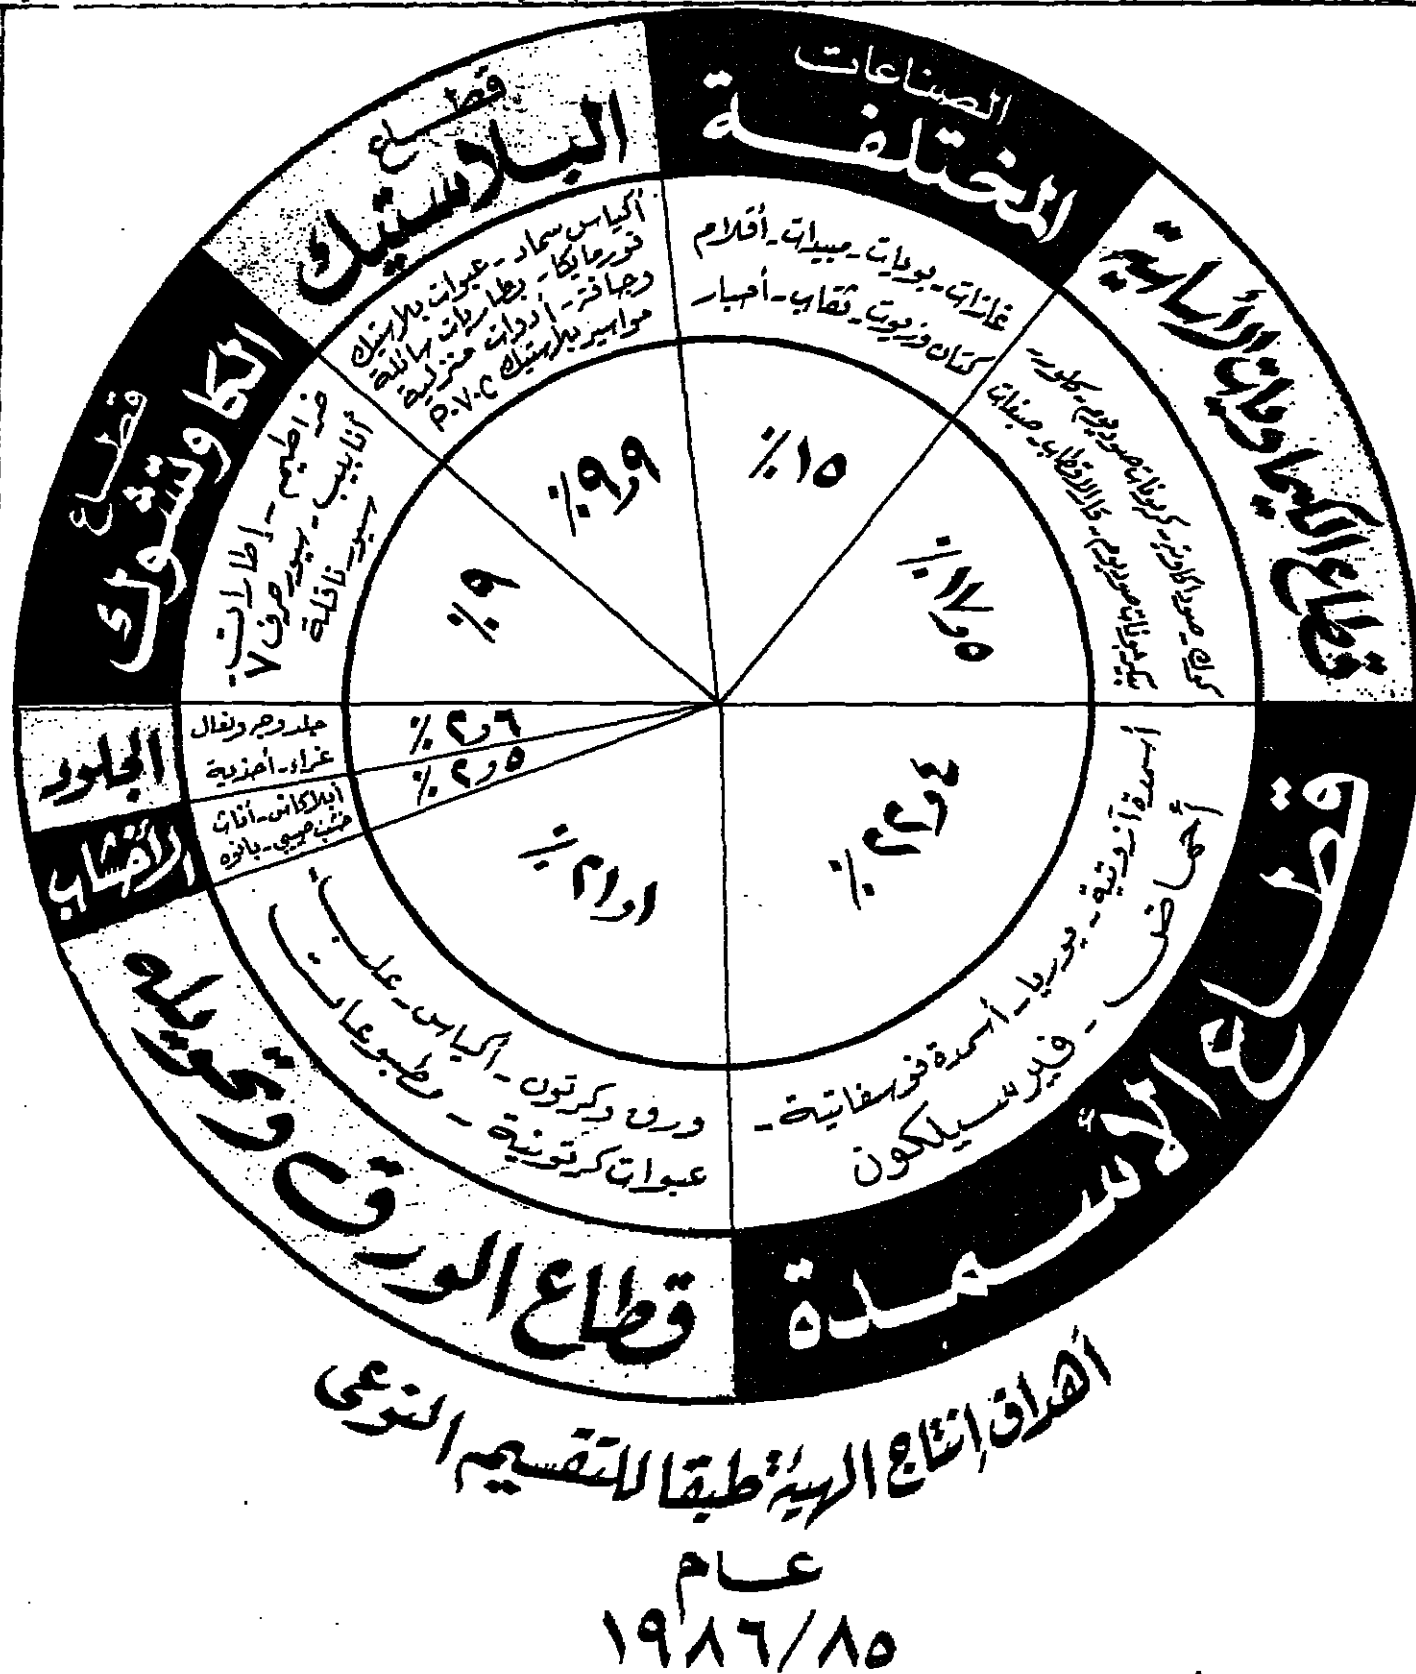 الصناعات
المختلفة
غازات - بويات - مبيدات - أقلام
كتان وزيوت - ثقاب - أحبار
٪١٥
قطاع الكيماويات الأساسية
كوك - صودا كاوية - كربونات صوديوم - كلور -
صوديوم - كلالأقطاب - صبغات
٥و١٧٪
قطاع الأسمدة
أسمدة آزوتية - يوريا - أسمدة فوسفاتية -
أحماض - فيرسيلكون
٤و٢٢٪
قطاع الورق وتحويله
ورق وكرتون - أكياس - علب -
عبوات كرتونية - مطبوعات
١و٢١٪
الأخشاب
أبلاكاش - أثاث
خشب حبيبي - بانوه
٥و٢٪
الجلود
جلد وجه ونعال
غراء - أحذية
٦و٢٪
قطاع
الكاوتشوك
خراطيم - إطارات -
أنابيب - سيور حرف ٧
سيور ناقلة
٩٪
قطاع
البلاستيك
أكياس سماد - عبوات بلاستيك
فورمايكا - بطاريات سائلة
وجافة - أدوات منزلية
مواسير بلاستيك P.V.C
٩و٩٪
أهداف إنتاج الهيئة طبقا للتقسيم النوعى
عام
١٩٨٦/٨٥